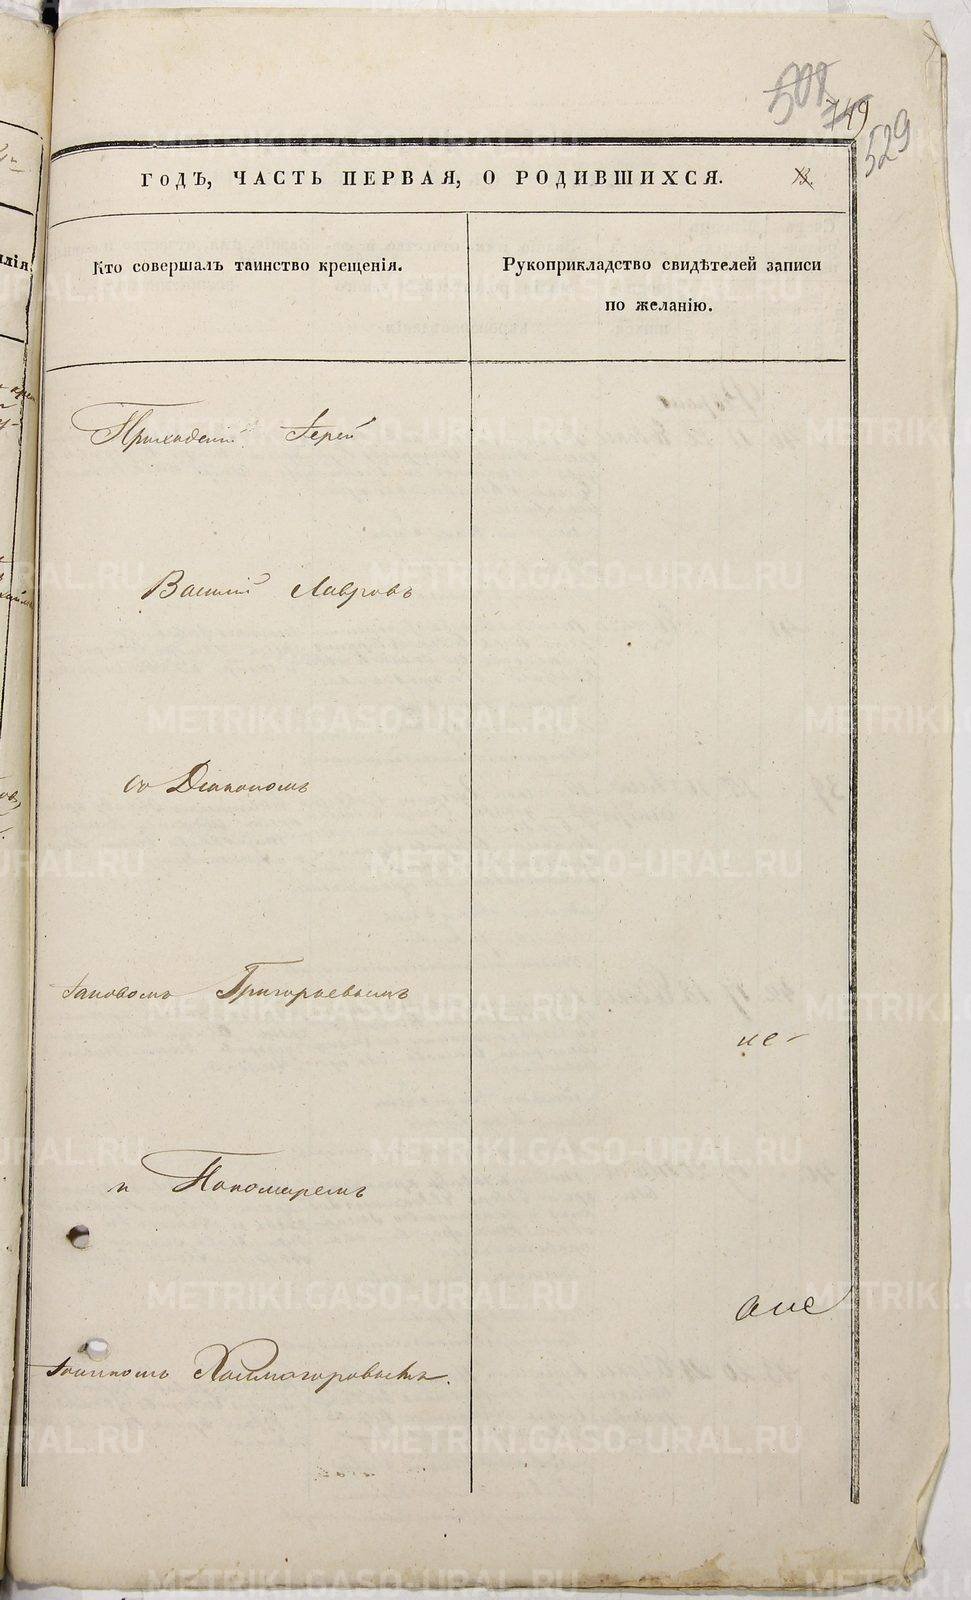 508
749
529
ГОДЪ, ЧАСТЬ ПЕРВАЯ, О РОДИВШИХСЯ.
Кто совершалъ таинство крещенія.
Рукоприкладство свидѣтелей записи
по желанію.
Приходскій Іерей
Василій Лавровъ
со Діакономъ
Іаковомъ Григорьевымъ
не-
и Пономаремъ
Іоанномъ Холмогоровымъ.
METRIKI.GASO-URAL.RU